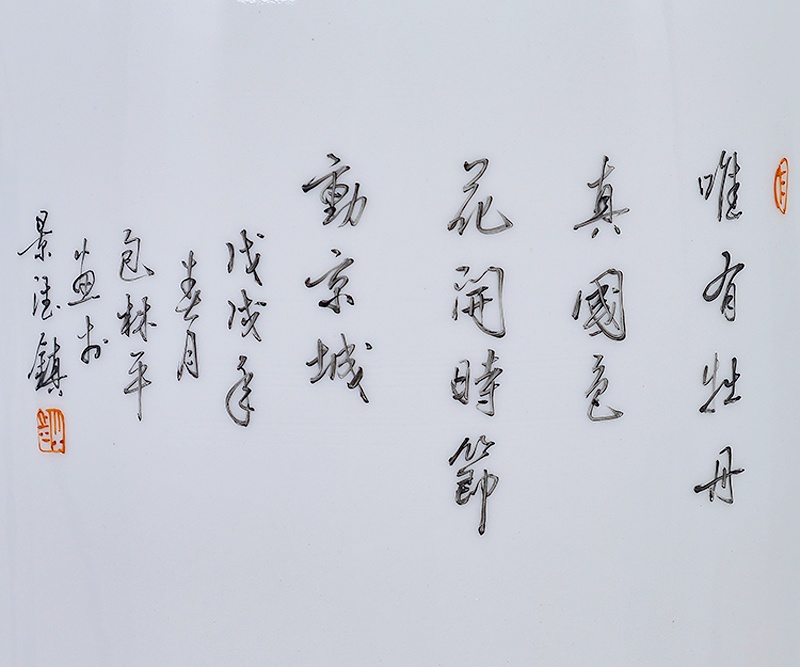 唯有牡丹
真國色
花開時節
動京城
戊戌年
春月
包林平
畵於
景德鎮